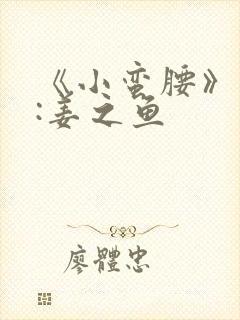 《小蛮腰》
:姜之鱼
廖體忠